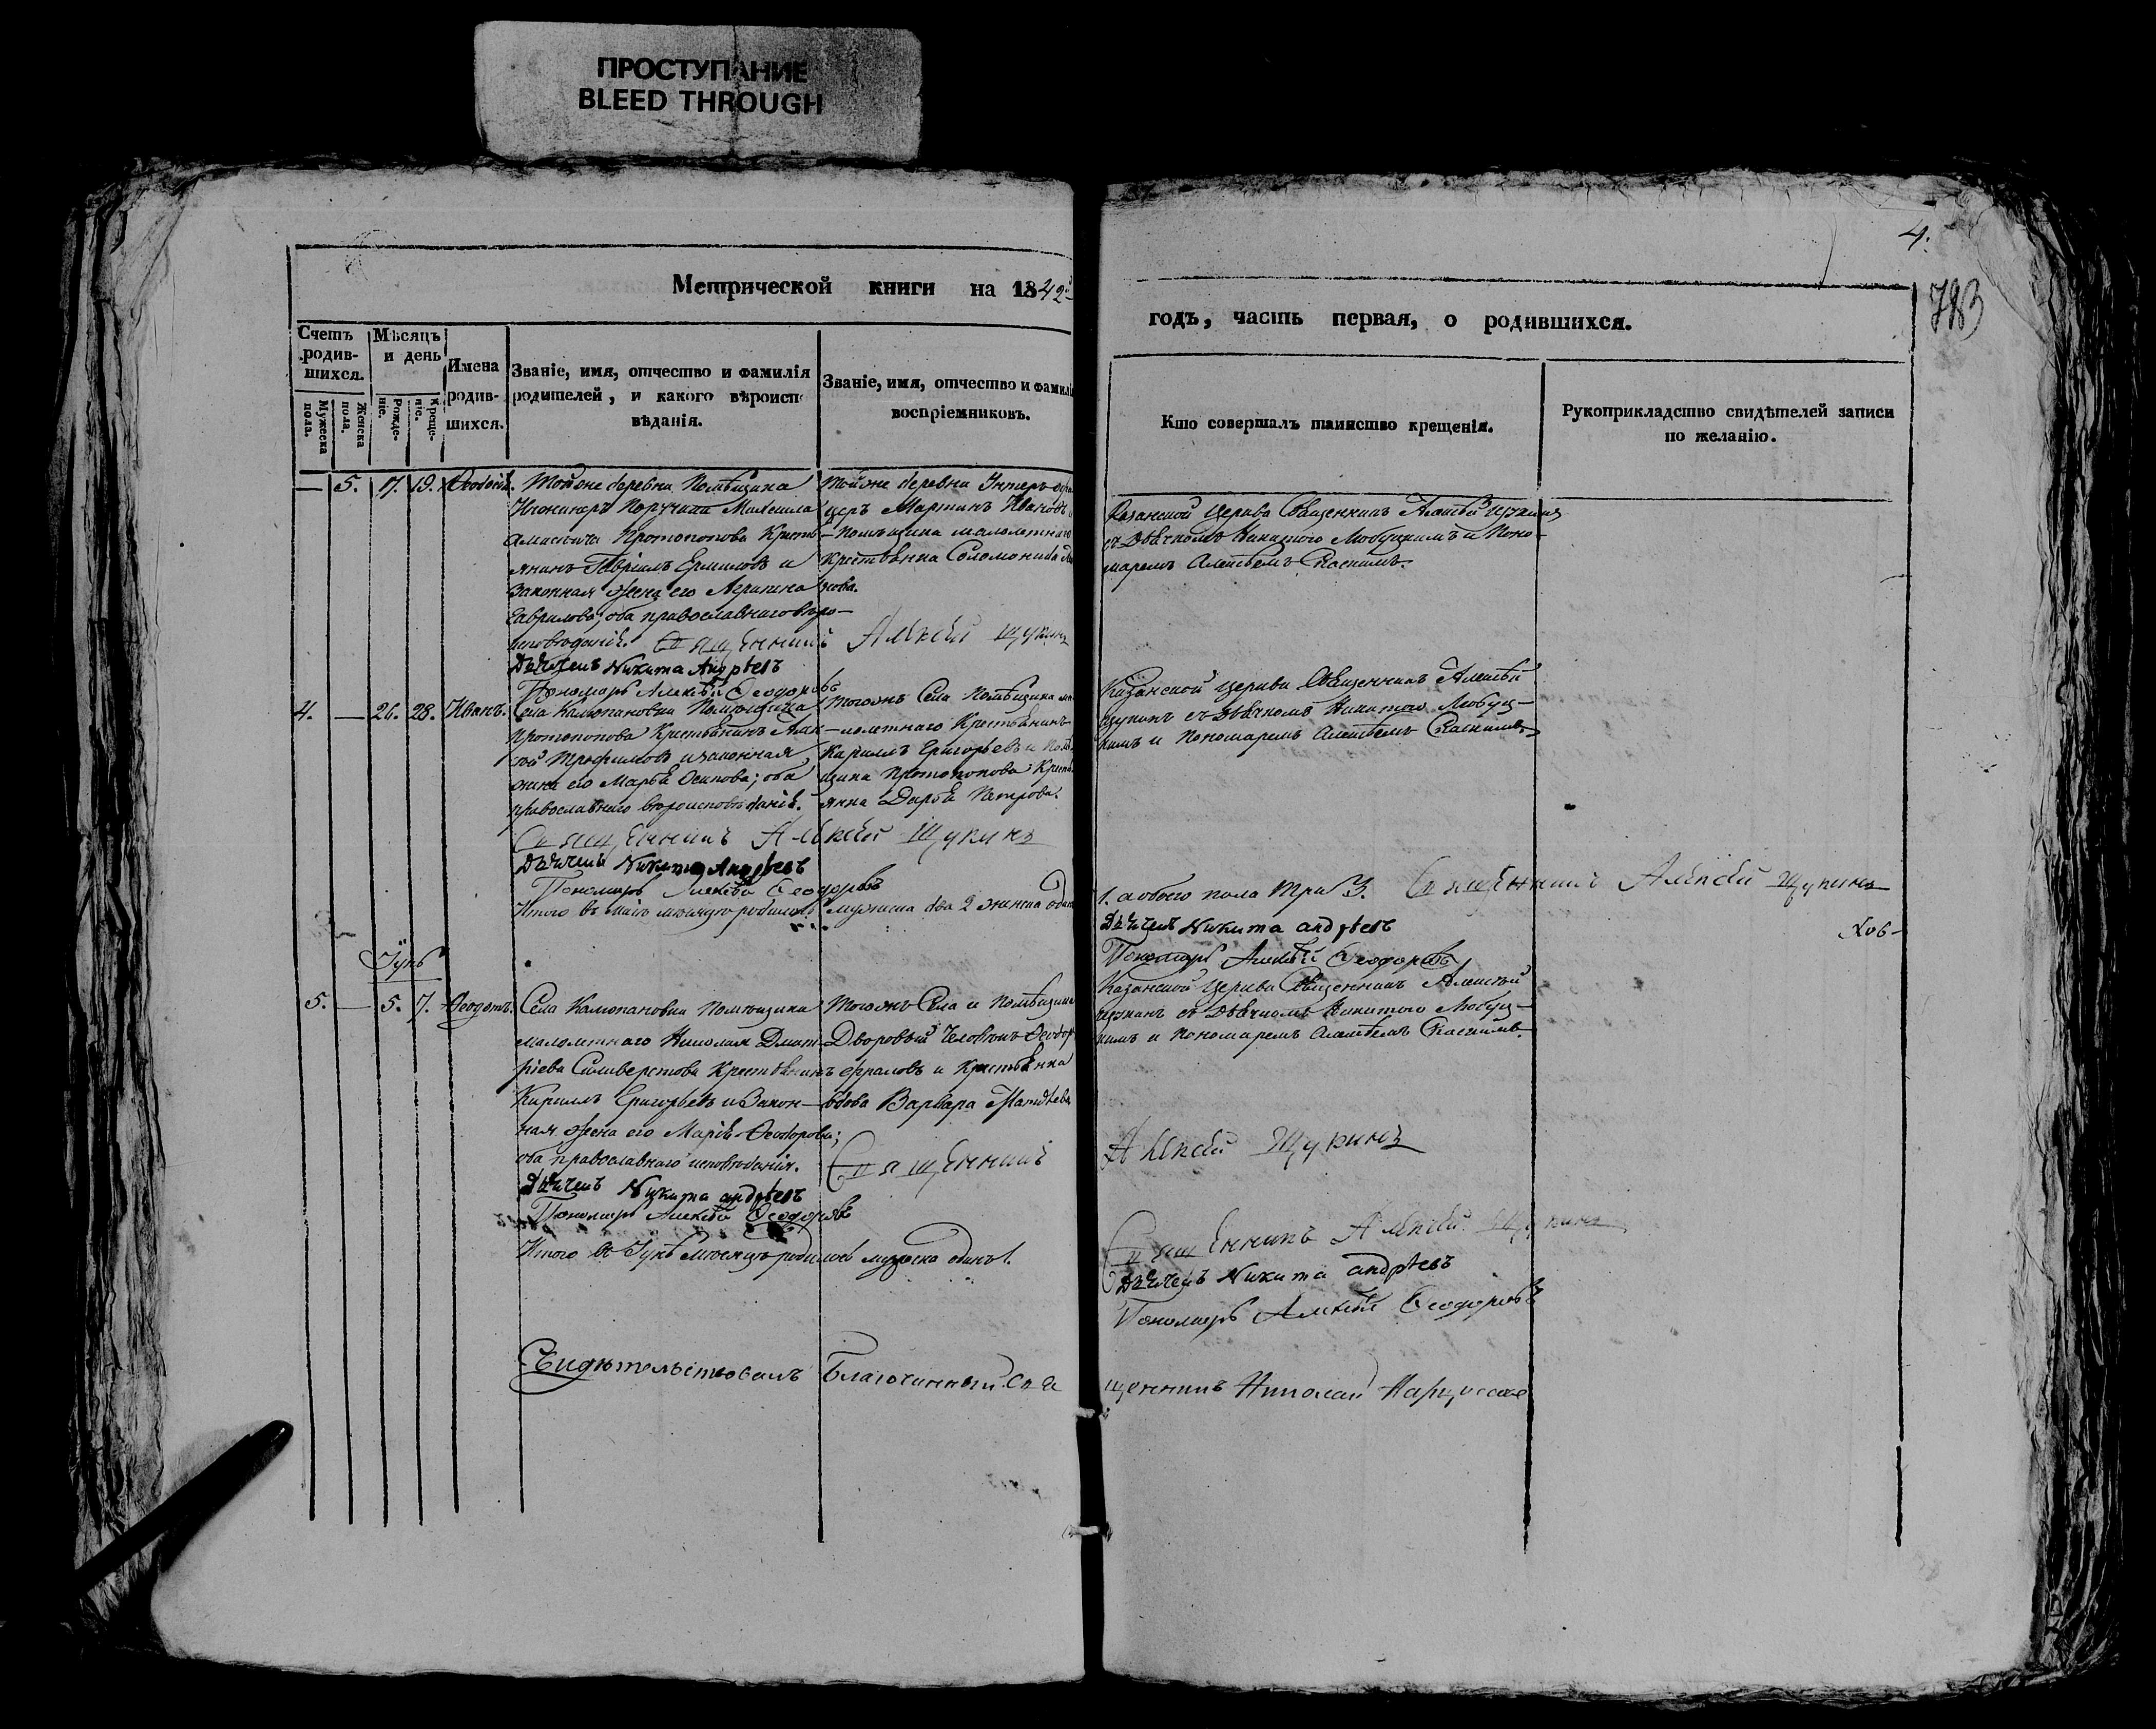 ПРОСТУПАНИЕ
BLEED THROUGH
4.
783
Метрической книги на 1842й
годъ, часть первая, о родившихся.
Счетъ родившихся.
Мужеска пола.
Женска пола.
Мѣсяцъ и день
Рожденіе.
Крещеніе.
Имена родившихся.
Званіе, имя, отчество и фамилія
родителей, и какого вѣроиспо
вѣданія.
Званіе, имя, отчество и фамилі
воспріемниковъ.
Кто совершалъ таинство крещенія.
Рукоприкладство свидѣтелей записи
по желанію.
— 5. 17. 19. Ѳеодосія.
Тойже деревни Помѣщика
Инженеръ Поручика Михаила
Протопопова Кресть-
янинъ Гавріилъ Ермиловъ и
законная жена его Агрипина
Гаврилова; оба православнаго вѣро-
исповѣданія. Священникъ Алексѣй Щукинъ
Дьячекъ Никита Андрѣевъ
Пономарь Алексѣй Ѳеодоровъ
тойже деревни Унтеръ-офи
церъ Мартинъ Ивановъ и
помѣщика малолѣтнаго
крестьянка Соломонида
Казанской Церкви Священникъ Алексѣй Щукинъ
съ Дьячкомъ Никитою Любуцкимъ и Поно-
маремъ Алексѣемъ Спаскимъ.
4. — 26. 28. Иванъ.
Села Калтопановки Помѣщика
Протопопова Крестьянинъ Алек-
сѣй Трофимовъ и законная
жена его Марья Осипова; оба
православнаго вѣроисповѣданія.
Священникъ Алексѣй Щукинъ
Дьячекъ Никита Андрѣевъ
Пономарь Алексѣй Ѳеодоровъ
тогожъ Села Помѣщика ма
лолѣтнаго Крестьянинъ
Кирилъ Григорьевъ и Помѣ
щика Протопопова Кресть
янка Дарья Петрова.
Казанской Церкви Священникъ Алексѣй
Щукинъ съ Дьячкомъ Никитою Любуц-
кимъ и Пономаремъ Алексѣемъ Спаскимъ.
Итого въ маіѣ мѣсяцѣ родилось мужеска два 2 женска одна
1. а обоего пола три 3. Священникъ Алексѣй Щукинъ
Дьячекъ Никита андрѣевъ
Пономарь Алексѣй Ѳеодоровъ
Іунь
5. — 5. 7. Ѳеодотъ.
Села Калтопановки помѣщика
малолѣтнаго Николая Дмит-
ріева Силиверстова Крестьянинъ
Кирилъ Григорьевъ и Закон-
ная жена его Марія Ѳеодорова;
оба православнаго исповѣданія.
Дьячекъ Никита андрѣевъ
Пономарь Алексѣй Ѳеодоровъ
Тогожъ Села и помѣщика
Дворовый Человѣкъ Ѳеодор
и Крестьянка
вдова Варвара Матвѣева
Священникъ Алексѣй Щукинъ
Казанской Церкви Священникъ Алексѣй
Щукинъ съ Дьячкомъ Никитою Любуц-
кимъ и Пономаремъ Алексѣемъ Спаскимъ.
Итого въ Іунѣ мѣсяцѣ родилось мужеска одинъ 1.
Священникъ Алексѣй Щукинъ
Дьячекъ Никита андрѣевъ
Пономарь Алексѣй Ѳеодоровъ
Свидѣтельствовалъ Благочинный Свя
щенникъ Николай